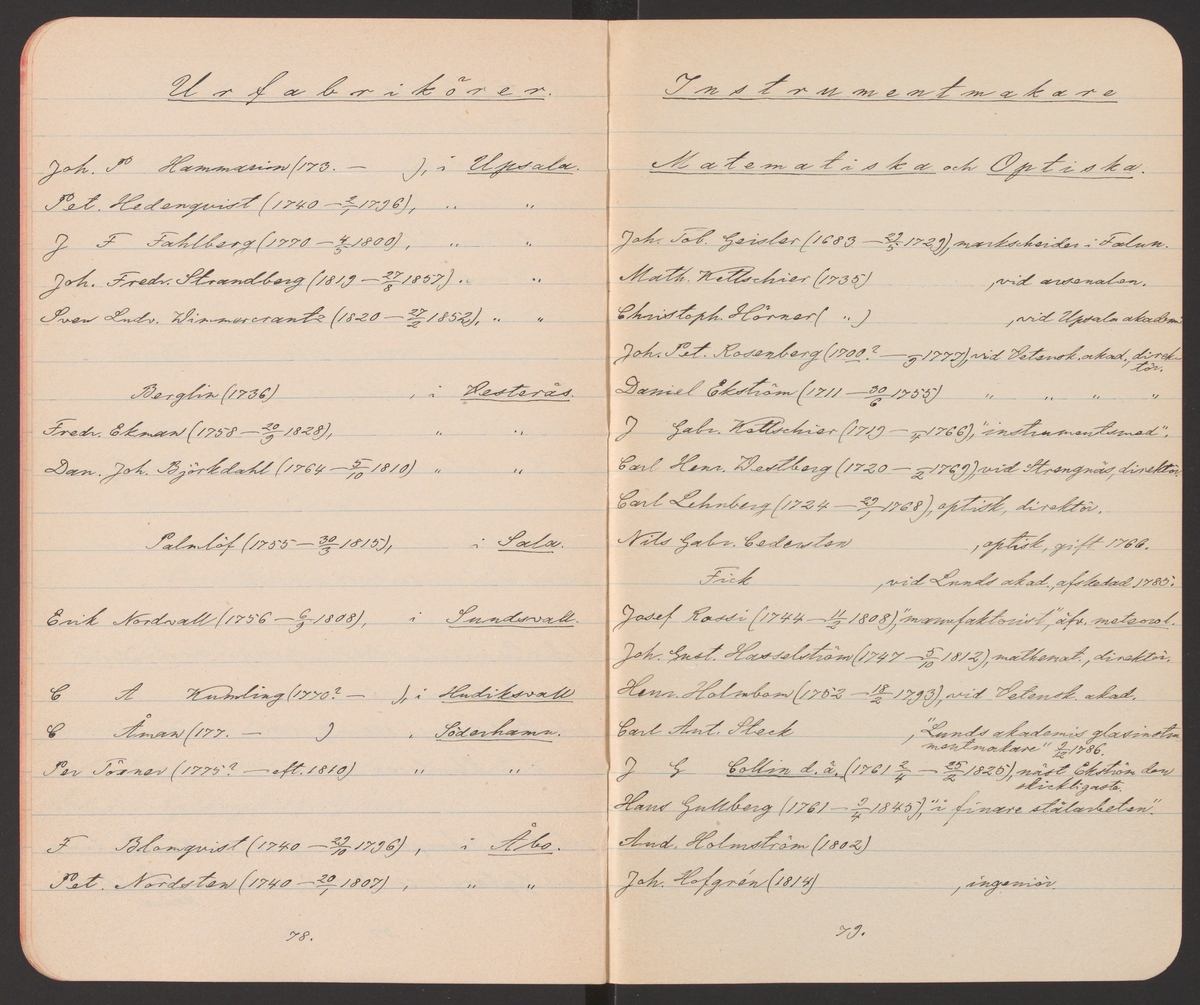 Urfabrikörer.
Joh. P Hammarion (173. — ), i Upsala.
Pet. Hedenqvist (1740 — 2/1 1796), " "
J F Fahlberg (1770 — 4/5 1800), " "
Joh. Fredr. Strandberg (1819 — 27/8 1857) " "
Sven Ludv. Wimmercrantz (1820 — 27/2 1852), " "
Berglin (1736) , i Vesterås.
Fredr. Ekman (1758 — 20/9 1828), " "
Dan. Joh. Björkdahl (1764 — 5/10 1810) " "
Palmlöf (1755 — 30/3 1815), i Sala.
Erik Nordvall (1756 — 6/9 1808), i Sundsvall.
C A Kumling (1770? — ), i Hudiksvall
C Åman (177. — ) , Söderhamn.
Per Törner (1775? — eft. 1810) " "
F Blomqvist (1740 — 29/10 1796), i Åbo.
Pet. Nordsten (1740 — 20/1 1807), " "
78.
Instrumentmakare
Matematiska och Optiska.
Joh. Tob. Geisler (1683 — 29/5 1729), markscheider i Falun.
Math. Kettschier (1735) , vid arsenalen.
Christoph. Hörner ( " ) , vid Upsala akademi
Joh. Pet. Rosenberg (1700? — /9 1777), vid Vetensk. akad., direktör.
Daniel Ekström (1711 — 30/6 1755) " " " "
J Gabr. Kettschier (1719 — /4 1766), "instrumentsmed".
Carl Henr. Westberg (1720 — /2 1769), vid Strengnäs, direktör
Carl Lehnberg (1724 — 29/1 1768), optisk, direktör.
Nils Gabr. Cedersten , optisk, gift 1766.
Fick , vid Lunds akad., afskedad 1785.
Josef Rossi (1744 — 11/2 1808), "manufaktorist", äfv. meteorol.
Joh. Gust. Hasselström (1747 — 5/10 1812), mathemat., direktör.
Henr. Holmbom (1752 — 18/2 1793), vid Vetensk. akad.
Carl Ant. Steck , "Lunds akademis glasinstru
mentmakare" 2/12 1786.
J G Collin d. ä. (1761 2/4 — 25/2 1825), näst Ekström den
skickligaste.
Hans Gullberg (1761 — 9/4 1845), "i finare stålarbeten".
And. Holmström (1802)
Joh. Hofgrén (1814) , ingeniör.
79.